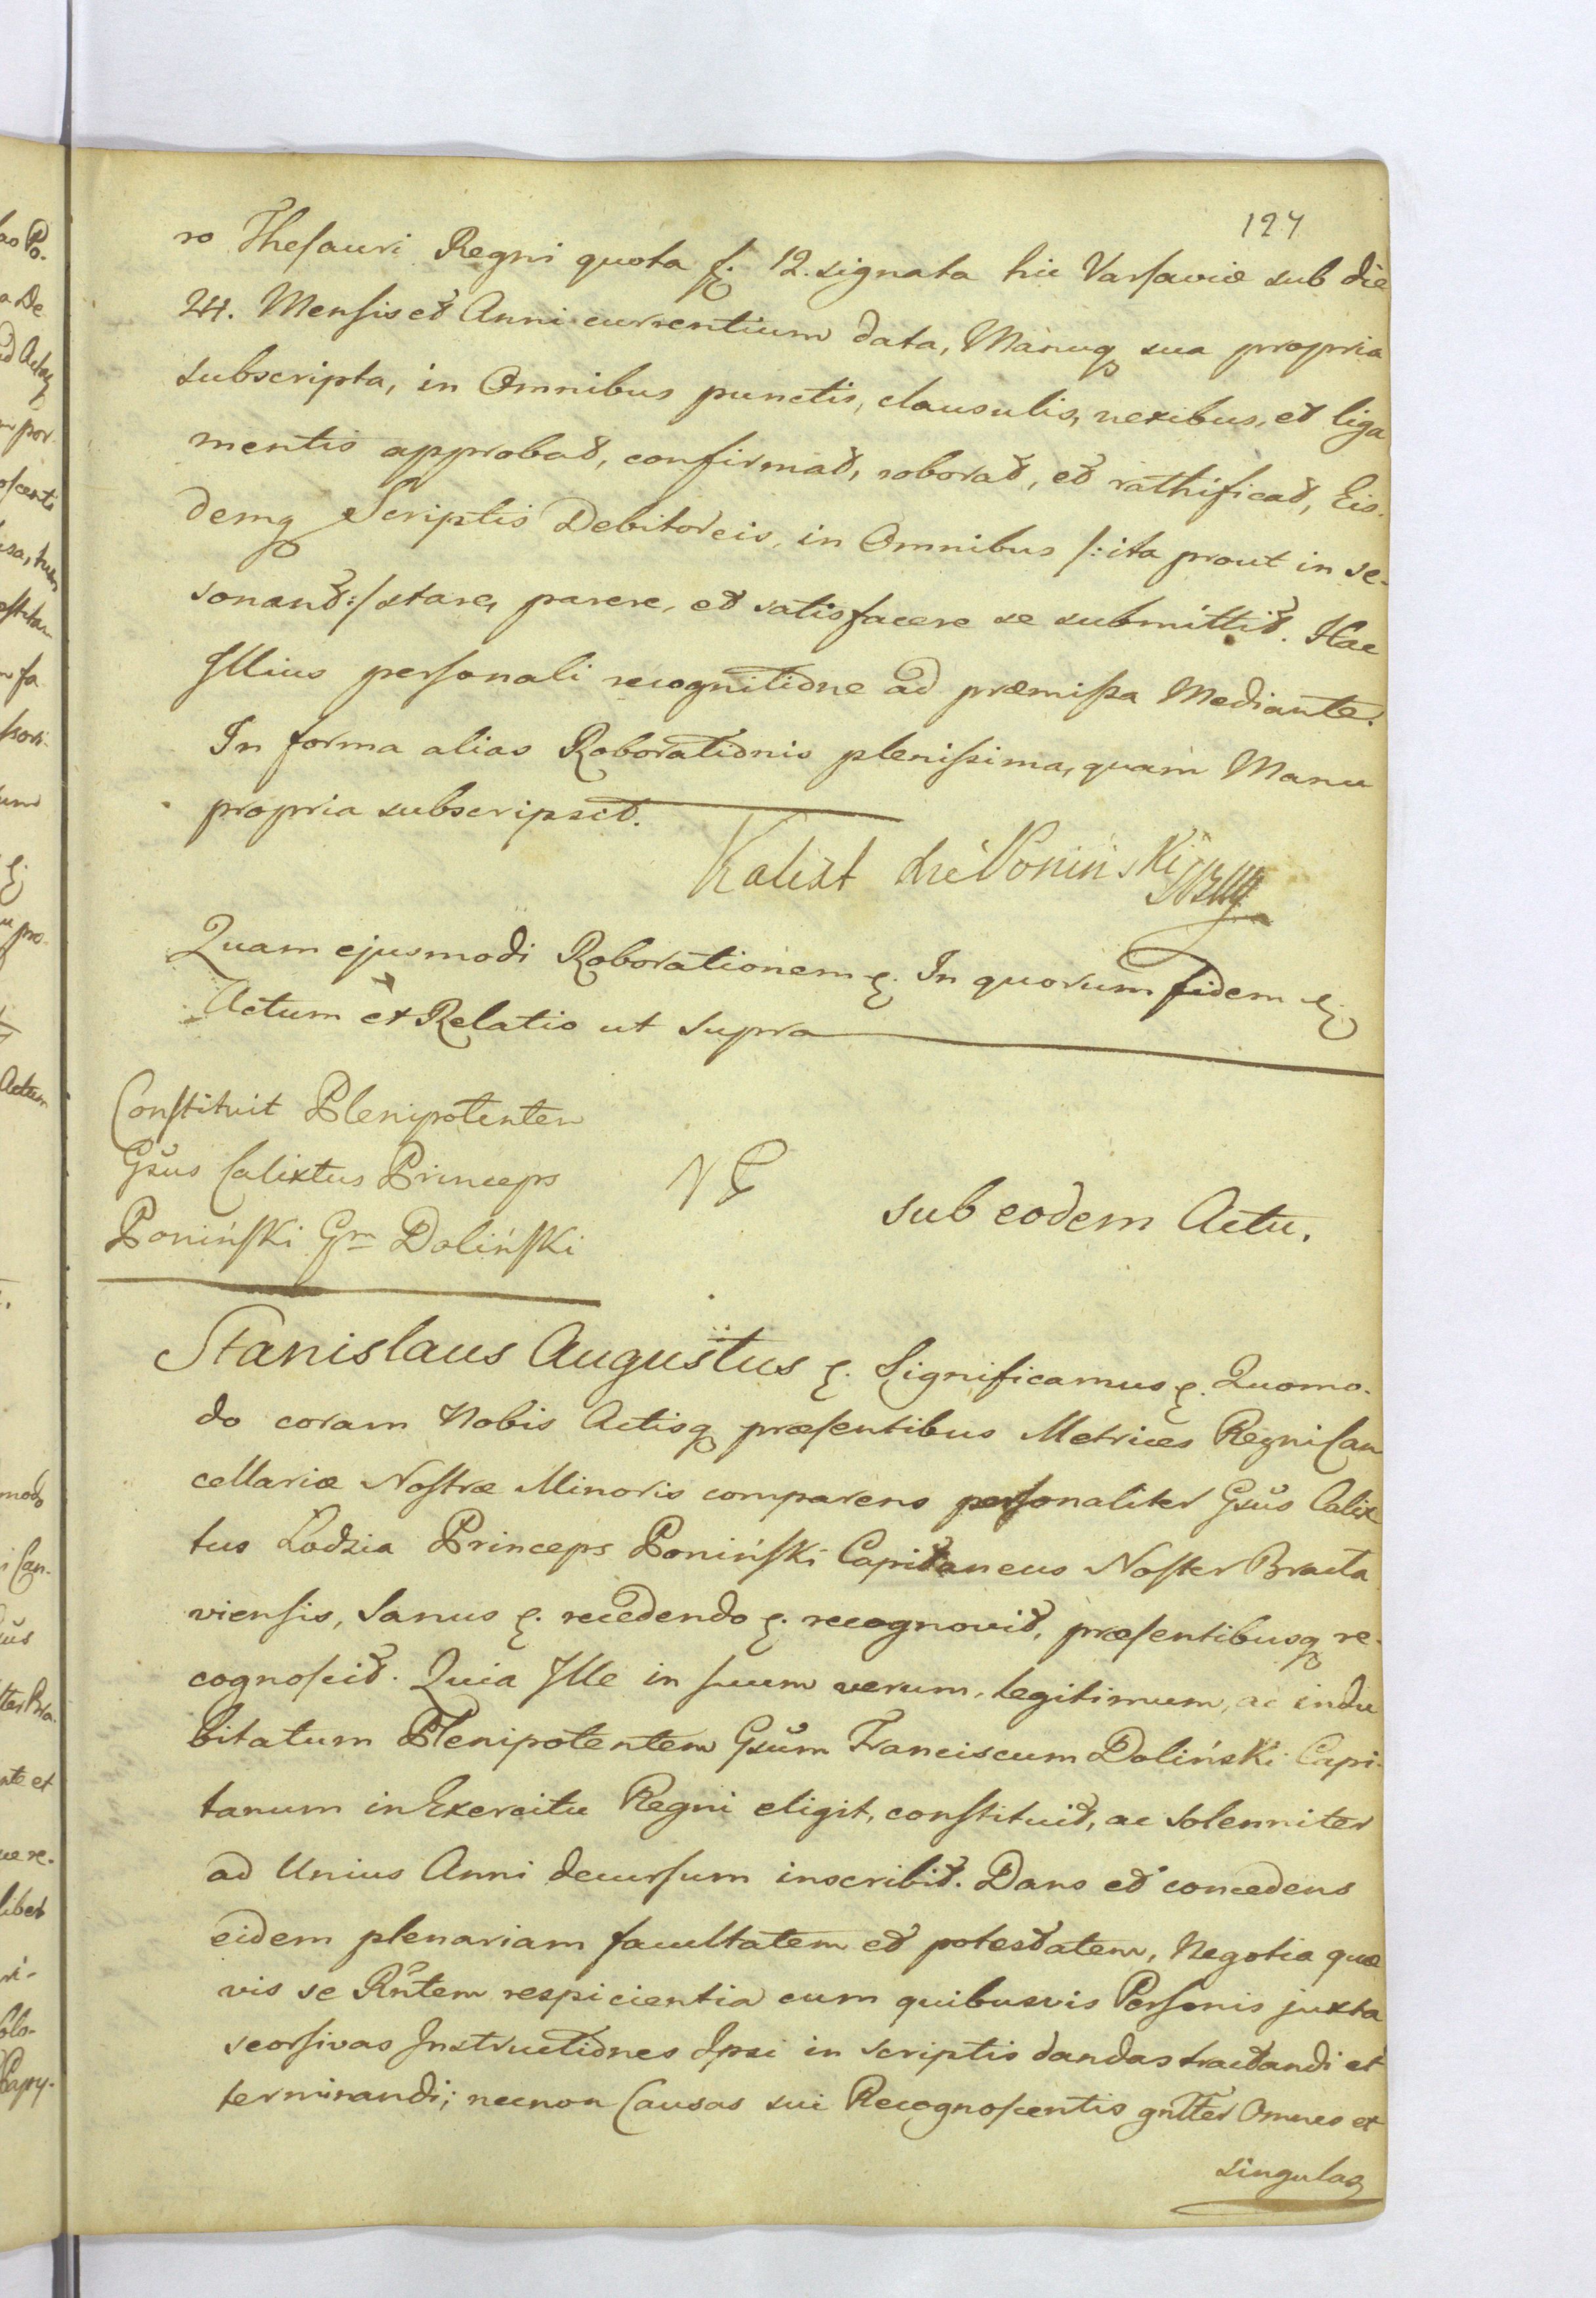 127
ro Thesauri Regni quota f. 12. signata hic Varsaviæ sub die
24. Mensis et Anni currentium data, Manuq sua propria
subscripta, in Omnibus punctis, clausulis, nexibus, et liga
mentis approbat, confirmat, roborat, et rathificat, Eis-
demq Scriptis Debitoreis, in Omnibus /: ita prout in se-
sonant :/ stare, parere, et satisfacere se submittit. Hac
Illius personali recognitione ad præmissa Mediante.
In forma alias Roborationis plenissima, quam Manu
propria subscripsit.
Kalixt Poninski
Quam ejusmodi Roborationem &. In quorum fidem &.
Actum et Relatio ut supra
Constituit Plenipotentem
Gsus Calixtus Princeps
Poniński Gm Doliński
sub eodem Actu.
Stanislaus Augustus &. Significamus &. Quomo-
do coram Nobis Actisq præsentibus Metrices Regni Can
cellariæ Nostræ Minoris comparens personaliter Gsus Calix
tus Lodzia Princeps Poniński Capitaneus Noster Bracla
viensis, Sanus &. recedendo &. recognovit, præsentibusq re-
cognoscit. Quia Ille in suum verum, legitimum, ac indu
bitatum Plenipotentem Gsum Franciscum Doliński Capi-
tanum in Exercitu Regni eligit, constituit, ac solenniter
ad Unius Anni decursum inscribit. Dans et concedens
eidem plenariam facultatem et potestatem, Negotia quæ
vis se Rntem respicientia cum quibusvis Personis juxta
seorsivas Instructiones Ipsi in scriptis dandas tractandi et
terminandi; necnon Causas sui Recognoscentis gnlter Omnes et
singulas